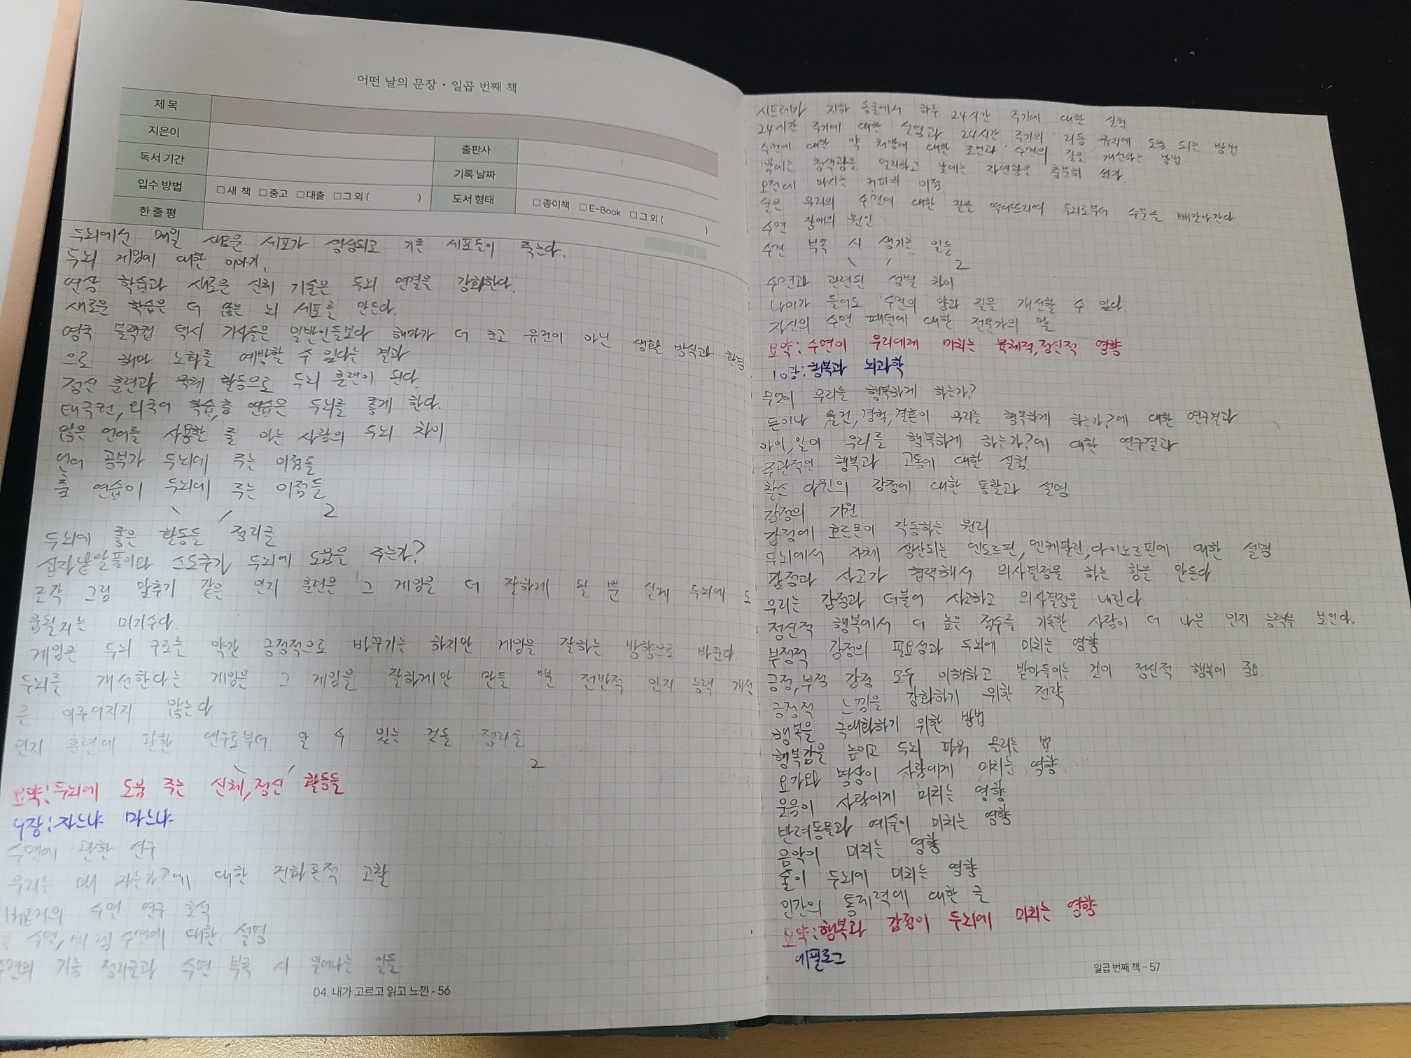 어떤 날의 문장 · 일곱 번째 책
제 목
지은이
출판사
독서 기간
기록 날짜
입수 방법 □ 새 책 □ 중고 □ 대출 □ 그 외 ( )
도서 형태 □ 종이책 □ E-Book □ 그 외 ( )
한 줄 평
두뇌에선 매일 새로운 세포가 생성되고 기존 세포들이 죽는다.
두뇌 게임에 대한 이야기.
연상 학습과 새로운 신체 기술은 두뇌 연결을 강화한다.
새로운 학습은 더 많은 뇌 세포를 만든다.
영국 블랙캡 택시 기사들은 일반인들보다 해마가 더 크고 유전이 아닌 생활 방식과 환경
으로 해마 노화를 예방할 수 있다는 결과
정신 훈련과 육체 활동으로 두뇌 훈련이 된다.
태극권, 외국어 학습, 춤 연습은 두뇌를 좋게 한다.
많은 언어를 사용할 줄 아는 사람의 두뇌 차이
언어 공부가 두뇌에 주는 이점들
춤 연습이 두뇌에 주는 이점들
2
두뇌에 좋은 활동들 정리글
십자낱말풀이와 스도쿠가 두뇌에 도움을 주는가?
조각 그림 맞추기 같은 인지 훈련은 그 게임을 더 잘하게 될 뿐 실제 두뇌에 도
움될지는 미지수다.
게임은 두뇌 구조를 약간 긍정적으로 바꾸기는 하지만 게임을 잘하는 방향으로 바꾼다
두뇌를 개선한다는 게임은 그 게임을 잘하게만 만들 뿐 전반적 인지 능력 개선
은 이루어지지 않는다
인지 훈련에 관한 연구로부터 알 수 있는 것들 정리글
2
요약: 두뇌에 도움 주는 신체, 정신 활동들
9장: 자느냐 마느냐
수면에 관한 연구
우리는 왜 자는가?에 대한 진화론적 고찰
수면 연구 초석
수면, 비렘수면에 대한 설명
수면의 기능 정리글과 수면 부족 시 일어나는 일들
04. 내가 고르고 읽고 느낀 - 56
시프레가 지하 동굴에서 하루 24시간 주기에 대한 실험
24시간 주기에 대한 설명과 24시간 주기의 리듬 유지에 도움 되는 방법
수면에 대한 약 처방에 대한 조언과 수면의 질을 개선하는 방법
밤에는 청색광을 멀리하고 낮에는 자연광을 충분히 쐬자.
오전에 마시는 커피의 이점
술은 우리의 수면에 대한 질을 떨어뜨리며 두뇌로부터 수분을 빼앗아간다.
수면 장애의 원인
수면 부족 시 생기는 일들
2
수면과 관련된 성별 차이
나이가 들어도 수면의 양과 질을 개선할 수 있다.
자신의 수면 패턴에 대한 전문가의 말
요약: 수면이 우리에게 미치는 육체적, 정신적 영향
10장: 행복과 뇌과학
무엇이 우리를 행복하게 하는가?
돈이나 물건, 경험, 결혼이 우리를 행복하게 하는가?에 대한 연구결과
아이, 일이 우리를 행복하게 하는가?에 대한 연구결과
주관적인 행복과 고통에 대한 실험
찰스 다윈의 감정에 대한 통찰과 설명
감정의 기원
감정에 호르몬이 작동하는 원리
두뇌에서 자체 생산되는 엔도르핀, 엔케팔린, 다이노르핀에 대한 설명
감정과 사고가 협력해서 의사결정을 하는 향을 만든다.
우리는 감정과 더불어 사고하고 의사결정을 내린다
정신적 행복에서 더 높은 점수를 기록한 사람이 더 나은 인지 능력을 보인다.
부정적 감정의 필요성과 두뇌에 미치는 영향
긍정, 부정 감정 모두 이해하고 받아들이는 것이 정신적 행복에 중요.
긍정적 느낌을 강화하기 위한 전략
행복을 극대화하기 위한 방법
행복감을 높이고 두뇌 파워 올리는 법
요가와 명상이 사람에게 미치는 영향
웃음이 사람에게 미치는 영향
반려동물과 예술이 미치는 영향
음악이 미치는 영향
술이 두뇌에 미치는 영향
인간의 통제력에 대한 글
요약: 행복과 감정이 두뇌에 미치는 영향
에필로그
일곱 번째 책 - 57